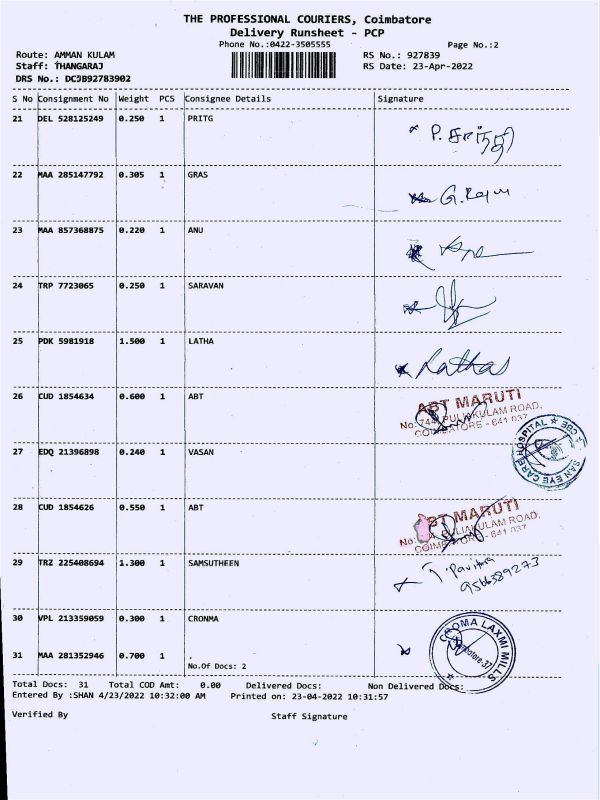 THE PROFESSIONAL COURIERS, Coimbatore
Delivery Runsheet - PCP
Phone No.:0422-3505555
Page No.:2
Route: AMMAN KULAM
RS No.: 927839
Staff: THANGARAJ
RS Date: 23-Apr-2022
DRS No.: DCJB92783902
S No Consignment No Weight PCS Consignee Details Signature
21 DEL 528125249 0.250 1 PRITG
22 MAA 285147792 0.305 1 GRAS
23 MAA 857368875 0.220 1 ANU
24 TRP 7723065 0.250 1 SARAVAN
25 PDK 5981918 1.500 1 LATHA
Lathas
26 CUD 1854634 0.600 1 ABT
ABT MARUTI
No: 744, PULIAKULAM ROAD,
COIMBATORE - 641 037
27 EDQ 21396898 0.240 1 VASAN
SAN EYE CARE HOSPITAL ★ CBE
28 CUD 1854626 0.550 1 ABT
BT MARUTI
No: PULIAKULAM ROAD,
COIMBATORE - 641 037
29 TRZ 225408694 1.300 1 SAMSUTHEEN
Pavithra
9566389273
30 VPL 213359059 0.300 1 CRONMA
CROMA LAXMI MILLS
31 MAA 281352946 0.700 1 .
No.Of Docs: 2
Total Docs: 31 Total COD Amt: 0.00 Delivered Docs: Non Delivered Docs:
Entered By :SHAN 4/23/2022 10:32:00 AM Printed on: 23-04-2022 10:31:57
Verified By Staff Signature